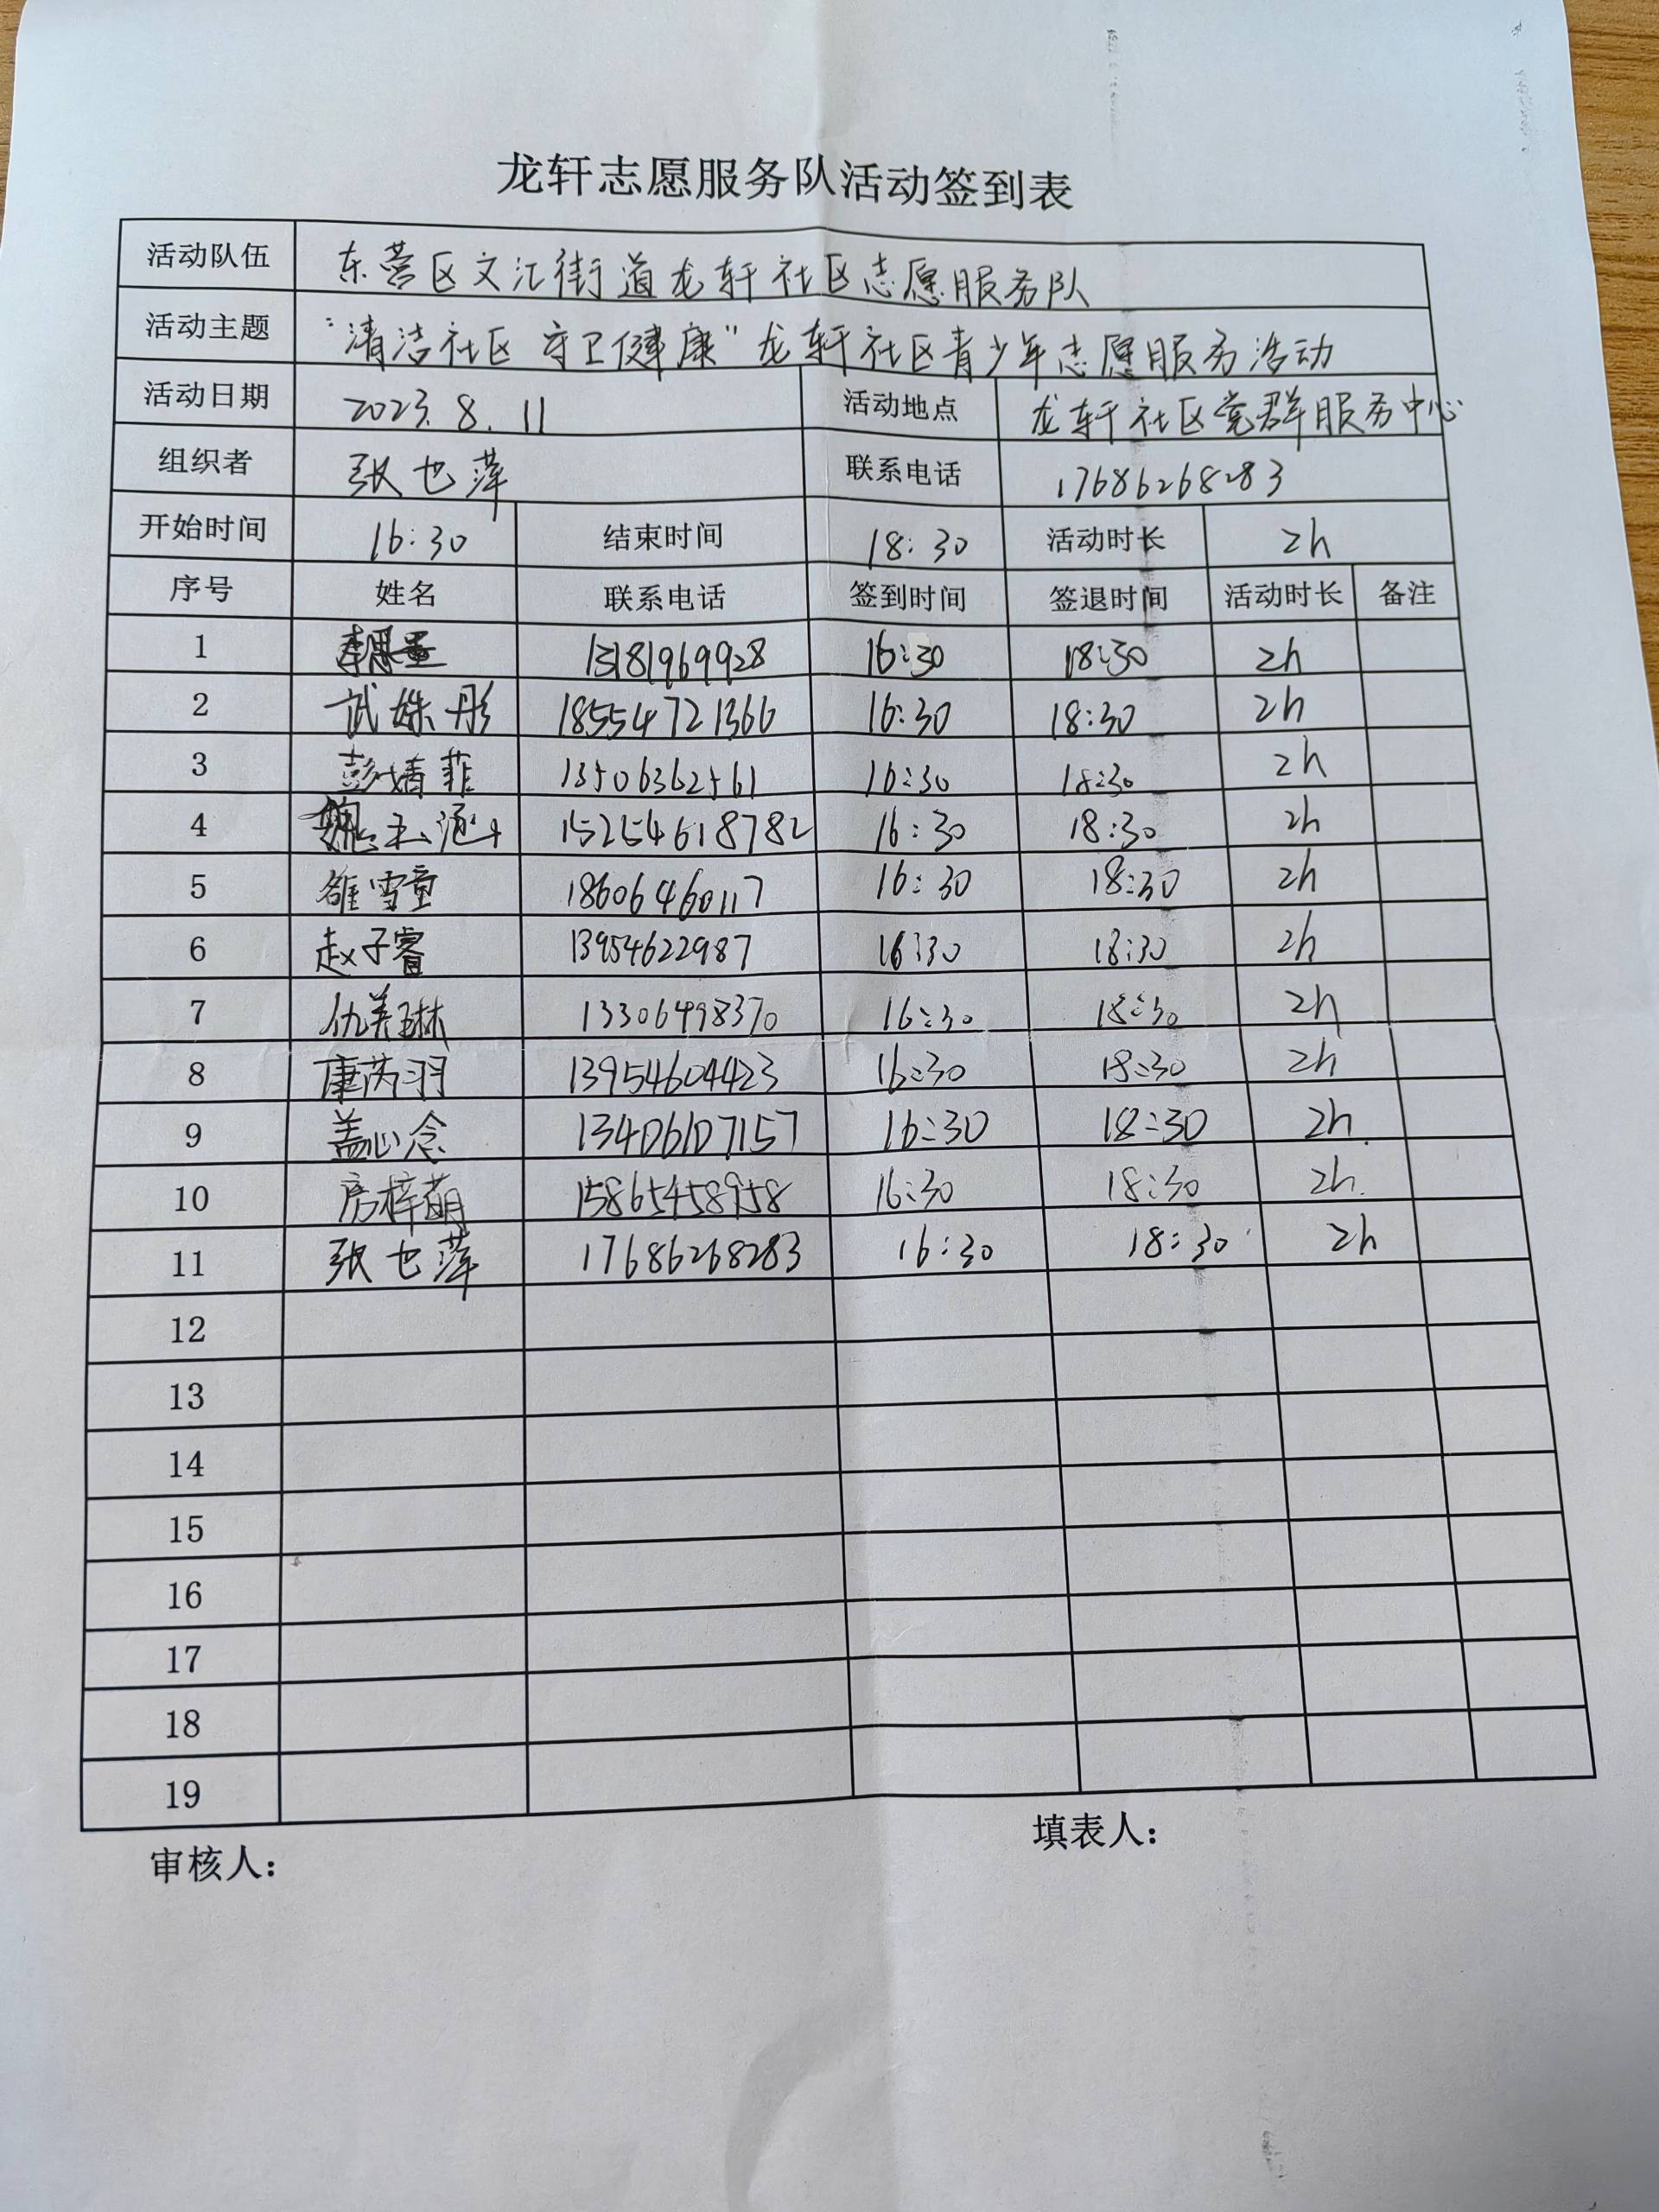 龙轩志愿服务队活动签到表
活动队伍 东营区文汇街道龙轩社区志愿服务队
活动主题 “清洁社区 守卫健康”龙轩社区青少年志愿服务活动
活动日期 2023.8.11 活动地点 龙轩社区党群服务中心
组织者 张也萍 联系电话 17686268283
开始时间 16:30 结束时间 18:30 活动时长 2h
序号 姓名 联系电话 签到时间 签退时间 活动时长 备注
1 13181969928 16:30 18:30 2h
2 武姝彤 18554721366 16:30 18:30 2h
3 彭婧菲 13506362561 16:30 18:30 2h
4 魏 15254618782 16:30 18:30 2h
5 雪童 18606460117 16:30 18:30 2h
6 赵子睿 13954622987 16:30 18:30 2h
7 仇美琳 13306498370 16:30 18:30 2h
8 康芮羽 13954604423 16:30 18:30 2h
9 盖心念 13406107157 16:30 18:30 2h.
10 房梓萌 15865458958 16:30 18:30 2h.
11 张也萍 17686268283 16:30 18:30 2h
12
13
14
15
16
17
18
19
审核人： 填表人：